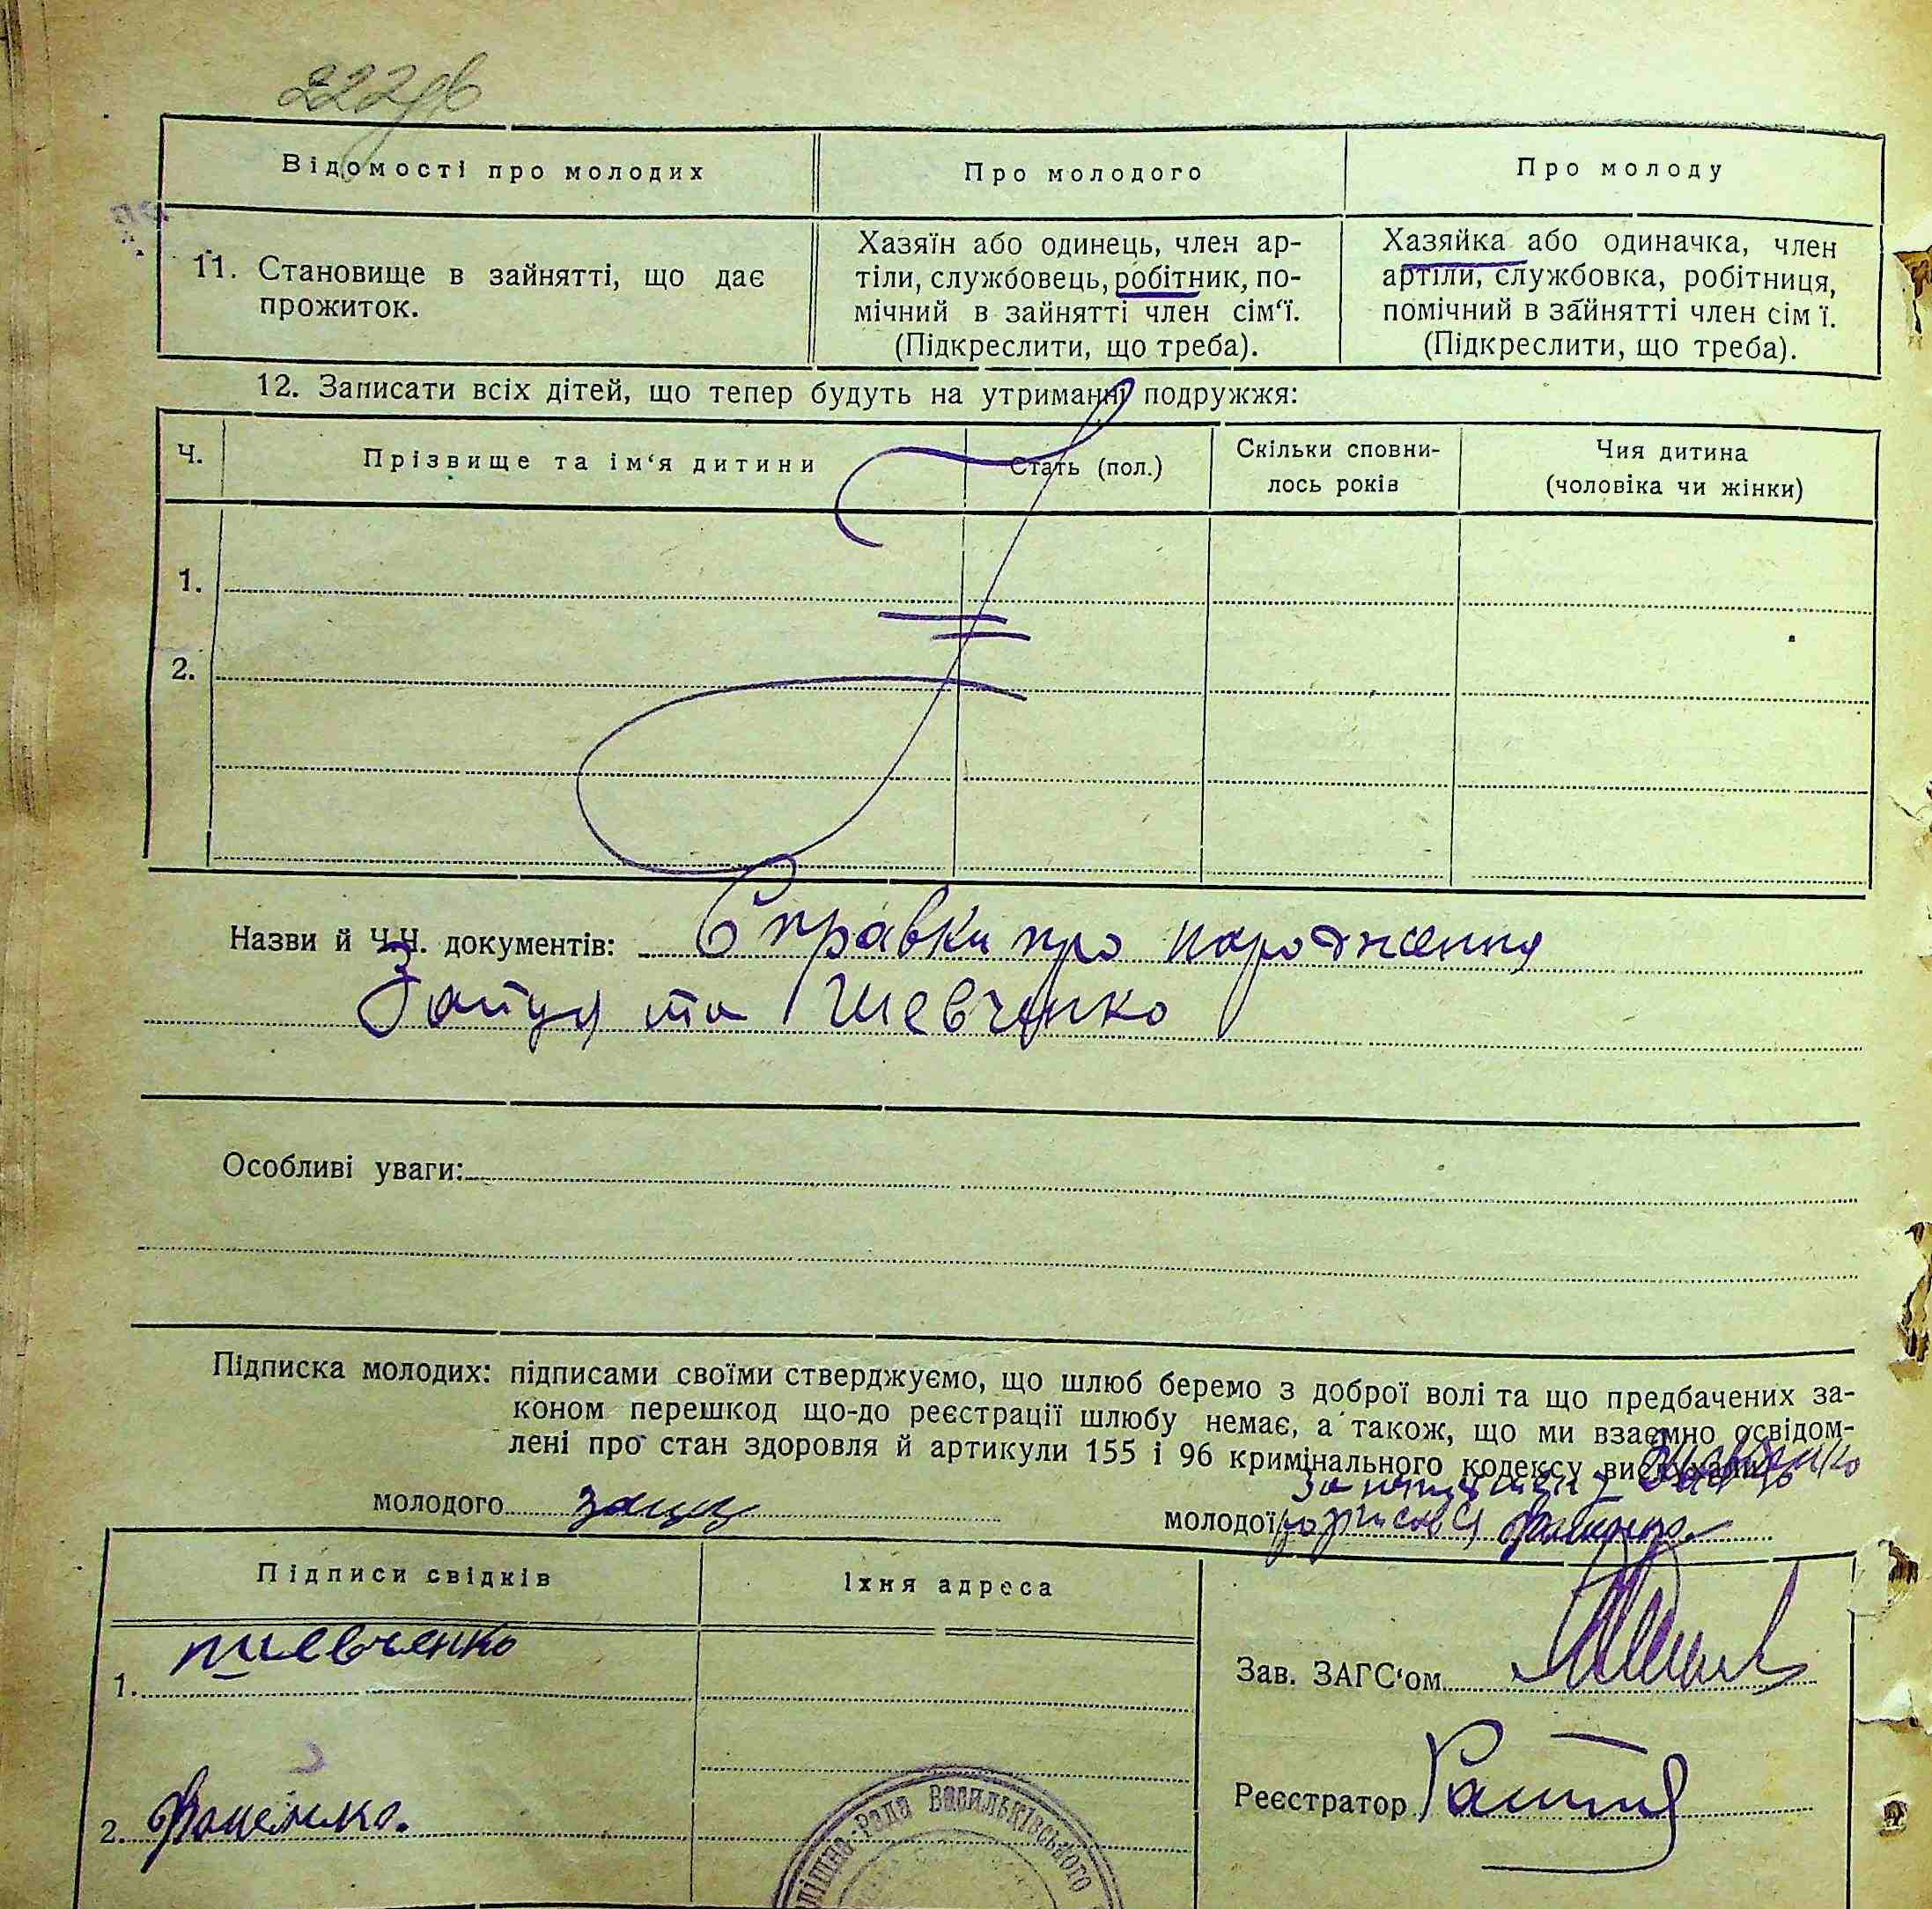 222зв
Відомості про молодих
Про молодого
Про молоду
11. Становище в зайнятті, що дає
прожиток.
Хазяїн або одинець, член ар-
тіли, службовець, робітник, по-
мічний в зайнятті член сім‘ї.
(Підкреслити, що треба).
Хазяйка або одиначка, член
артіли, службовка, робітниця,
помічний в зайнятті член сім ї.
(Підкреслити, що треба).
12. Записати всіх дітей, що тепер будуть на утриманні подружжя:
Ч.
Прізвище та ім‘я дитини
Стать (пол.)
Скільки сповни-
лось років
Чия дитина
(чоловіка чи жінки)
1.
2.
Назви й Ч.Ч. документів: Справки про народження
Зайця та Шевченко
Особливі уваги:
Підписка молодих: підписами своїми стверджуємо, що шлюб беремо з доброї волі та що предбачених за-
коном перешкод що-до реєстрації шлюбу немає, а також, що ми взаємно освідом-
лені про стан здоровля й артикули 155 і 96 кримінального кодексу вислухали.
молодого Заяц
молодої
Підписи свідків
Їхня адреса
1. Шевченко
2.
Зав. ЗАГС‘ом
Реєстратор
Рада Васильківського